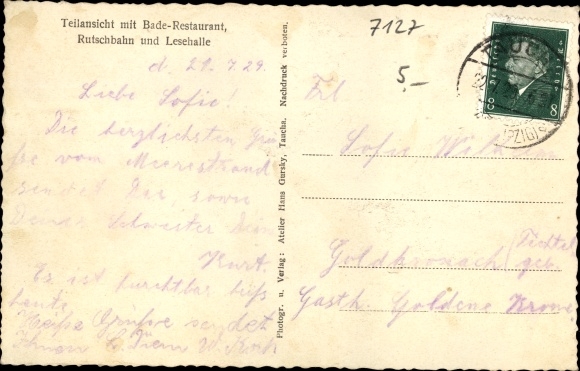 Teilansicht mit Bade-Restaurant,
Rutschbahn und Lesehalle
d. 21.7.29.
Liebe Sofie!
Die herzlichsten Grü-
ße vom Meeresstrand
sendet Dir, sowie
Deiner Schwester Dein
Kurt.
Es ist furchtbar heiß
heute
Heiße Grüße sendet
Photogr. u. Verlag: Atelier Hans Gursky, Taucha. Nachdruck verboten.
7127
5,-
Frl
Sofie
Goldkronach
Fichtel
geb.
Gasth. Goldene Krone
8 8